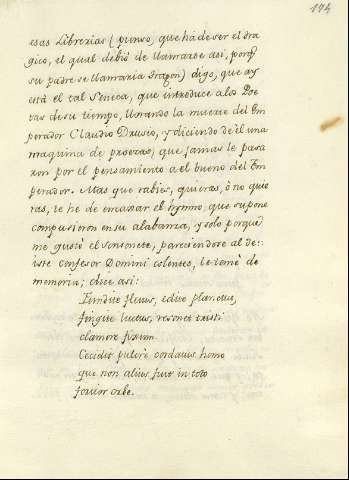 174
esas Librerias (pienso, que há de ser el tra
gico, el qual debió de llamarse asi, porq̃
su padre se llamaria Tragon) digo, que ay
está el tal Seneca, que introduce a los Poe
tas de su tiempo, llorando la muerte del Em
perador Claudio Druso, y diciendo de èl una
maquina de proezas, que jamas le pasa
ron por el pensamiento a el bueno del Em
perador. Mas que rabies, quieras, ò no quie
ras, te he de encaxar el hymno, que supone
compusieron en su alabanza, y solo porque
me gustó el sonsonete, pareciendose al de:
iste confesor Domini colentes, le tomè de
memoria; dice asi:
Fundite fletus, edite planctus,
fingite luctus, resonet tristi
clamore forum
Cecidit pulcrè cordatus homo
quo non alius fuit in toto
fortior orbe.